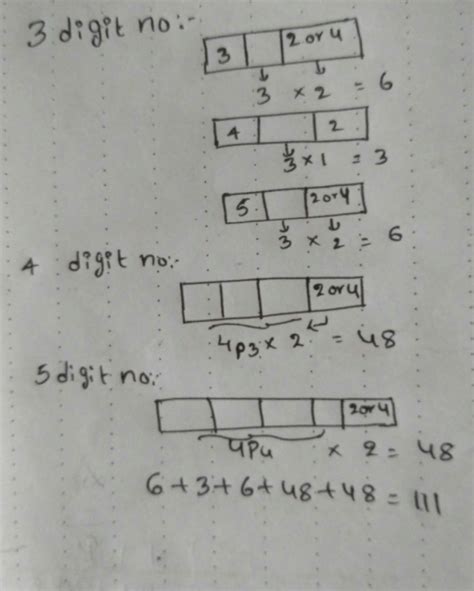 3 digit no:-
3 2 or 4
3 × 2 = 6
4 2
3 × 1 = 3
5 2 or 4
3 × 2 = 6
4 digit no:-
2 or 4
4P3 × 2 = 48
5 digit no:-
2 or 4
4P4 × 2 = 48
6 + 3 + 6 + 48 + 48 = 111